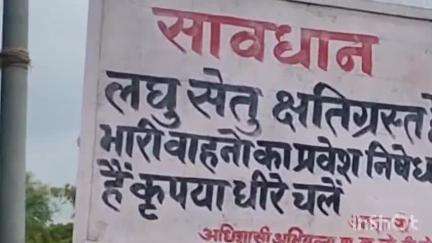 सावधान
लघु सेतु क्षतिग्रस्त है
भारी वाहनों का प्रवेश निषेध
हैं कृपया धीरे चलें
अधिशासी
InShOt